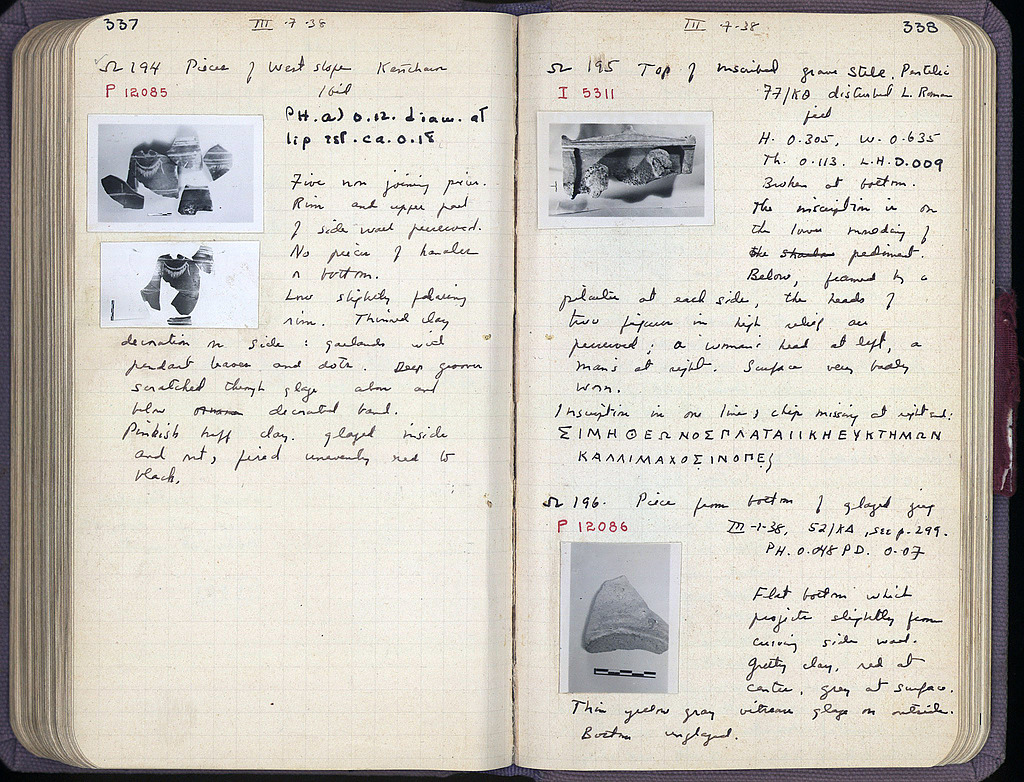 337
III · 7 · 38
Ω 194 Pieces of West slope Kantharos
P 12085
PH. a) 0.12. diam. at
lip est. ca. 0.18
Five non joining pieces.
Rim and upper part
of side wall preserved.
No pieces of handles
or bottom.
Low slightly flaring
rim. Thinned clay
decoration on side : garlands with
pendant leaves and dots. Deep grooves
scratched through glaze above and
below decorated band.
Pinkish buff clay. glazed inside
and out, fired unevenly red to
black.
III · 7 - 38
338
Ω 195 Top of inscribed grave stele. Pentelic
I 5311
77/ΚΘ disturbed L. Roman
fill
H. 0.305, W. 0.635
Th. 0.113. L.H. 0.009
Broken at bottom.
The inscription is on
the lower moulding of
the shadow pediment.
Below, framed by a
pilaster at each side, the heads of
two figures in high relief are
preserved ; a woman's head at left, a
man's at right. Surface very badly
worn.
Inscription in one line, chip missing at right end:
ΣΙΜΗΘΕΩΝΟΣΠΛΑΤΑΙΙΚΗΕΥΚΤΗΜΩΝ
ΚΑΛΛΙΜΑΧΟΣΙΝΟΠΕ
Ω 196. Piece from bottom of glazed jug
P 12086
III -1-38, 52/ΚΔ, see p. 299.
PH. 0.048 PD. 0.07
Flat bottom which
projects slightly from
curving side wall.
Gritty clay, red at
center, gray at surface.
Thin yellow gray vitreous glaze on outside.
Bottom unglazed.